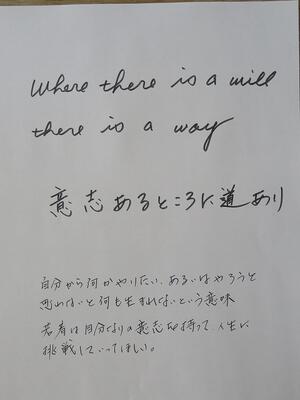 Where there is a will
there is a way
意志あるところに道あり
自分から何かやりたい、あるいはやろうと
思わないと何も生まれないという意味
若者は自分なりの意志を持って、人生に
挑戦していってほしい。